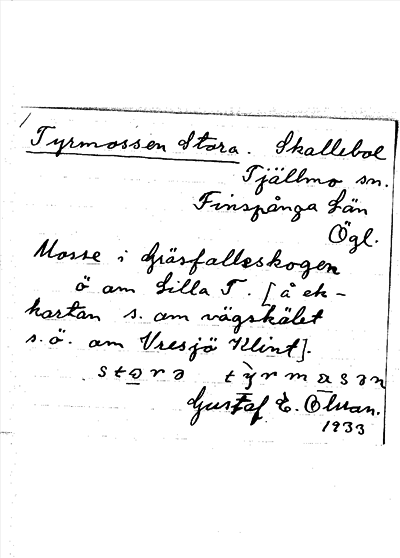 Tyrmossen Stora. Skallebol
Tjällmo sn.
Finspånga Län
Ögl.
Mosse i Gräsfallsskogen
ö om Lilla T. [å ek-
kartan s. om vägskälet
s.ö. om Vresjö Klint].
storə tyrmasən
Gustaf E.
1933